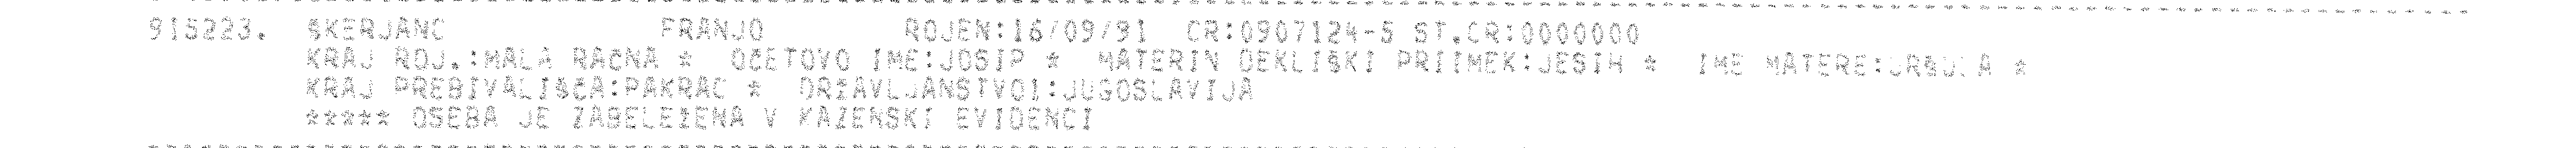 915223. ŠKERJANC FRANJO ROJEN:16/09/91 CR:0907124-5 ST.CR:0000000
KRAJ ROJ.:MALA RAČNA * OČETOVO IME:JOSIP * MATERIN DEKLIŠKI PRIIMEK:JESIH * IME MATERE:URŠULA *
KRAJ PREBIVALIŠČA:PAKRAC * DRŽAVLJANSTVO1:JUGOSLAVIJA
***** OSEBA JE ZABELEŽENA V KAZENSKI EVIDENCI